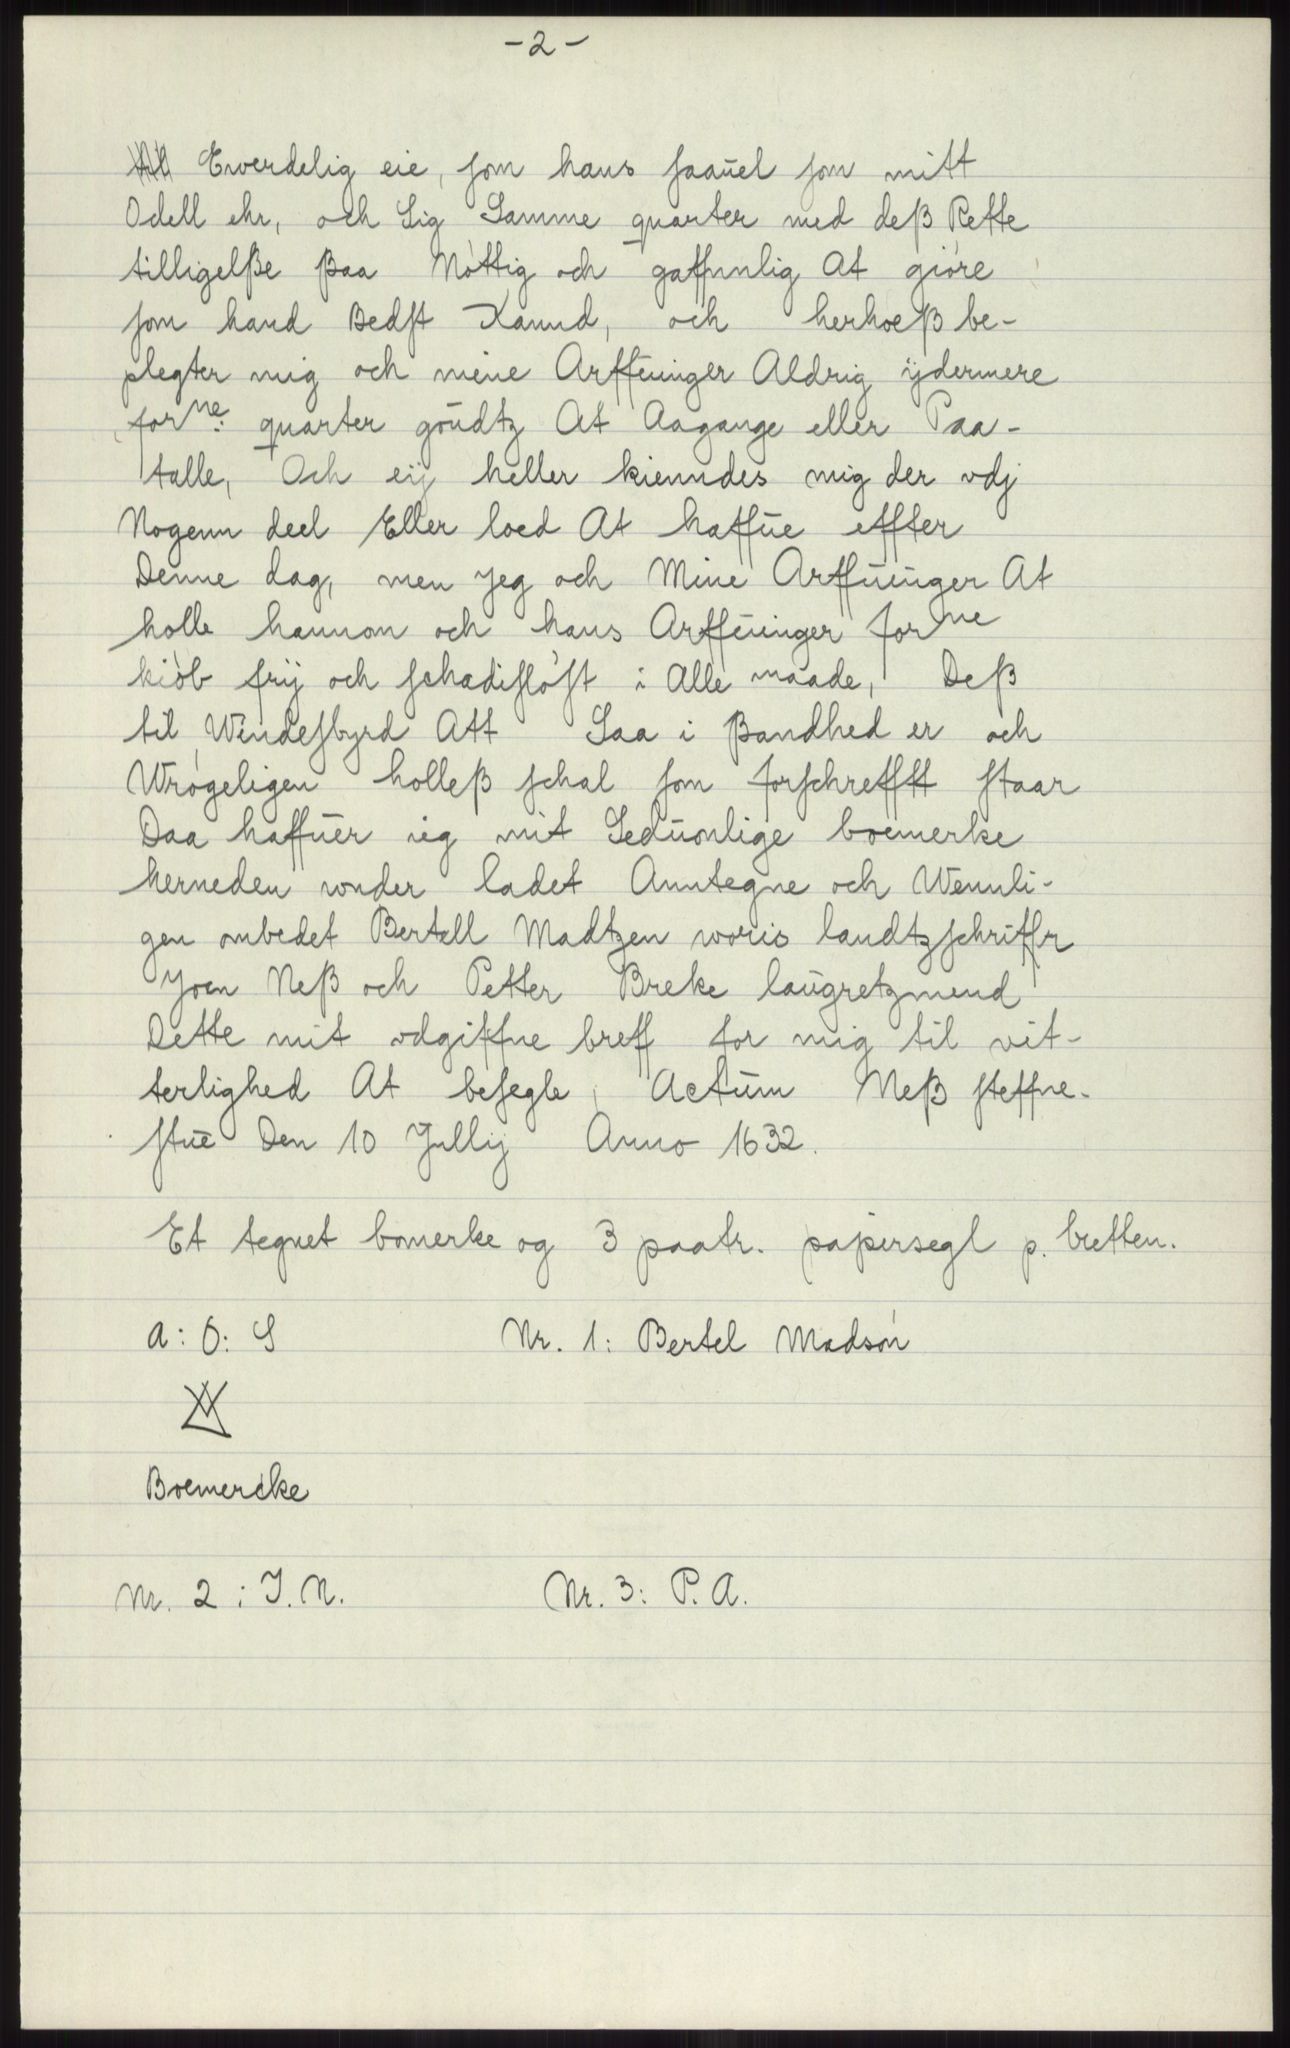 - 2 -
Ewerdelig eie, som hans saauel som mitt
Odell ehr, och Sig Samme quarter med deß Rette
tilligelße ßaa Nöttig och gaffnnlig At giöre
som hand Bedst Kannd, och herhoeß be-
plegter mig och mine Arffuinger Aldrig ÿdermere
forne: quarter goudtz At Aagange eller Paa-
talle, Och eÿ heller kienndes mig der vdj
Nogenn deel Eller loed At haffue effter
Denne dag, men Jeg och Mine Arffuinger At
holle hannom och hans Arffuinger forne
kiöb frÿ och schadislöst i Alle maade, Deß
til Windesbyrd Att Saa i ßandhed er och
Wrögeligen holleß schal som forschrefftt staar
Daa haffuer ieg mit Seduonlige boemerke
herneden vnder ladet Anntegne och Wennli-
gen ombedet Bertell Madtzen woris landtzschriffr
Joen Neß och Petter Breke laugretzmend
Dette mit vdgiffne breff for mig til vit-
terlighed At besegle, Actum Neß steffne-
stue Den 10 Jullij Anno 1632.
Et tegnet bomerke og 3 paatr. papirsegl p. bretten.
a: O: S Nr. 1: Bertel Madsön
Boemercke
Nr. 2: J. N. Nr. 3: P. A.